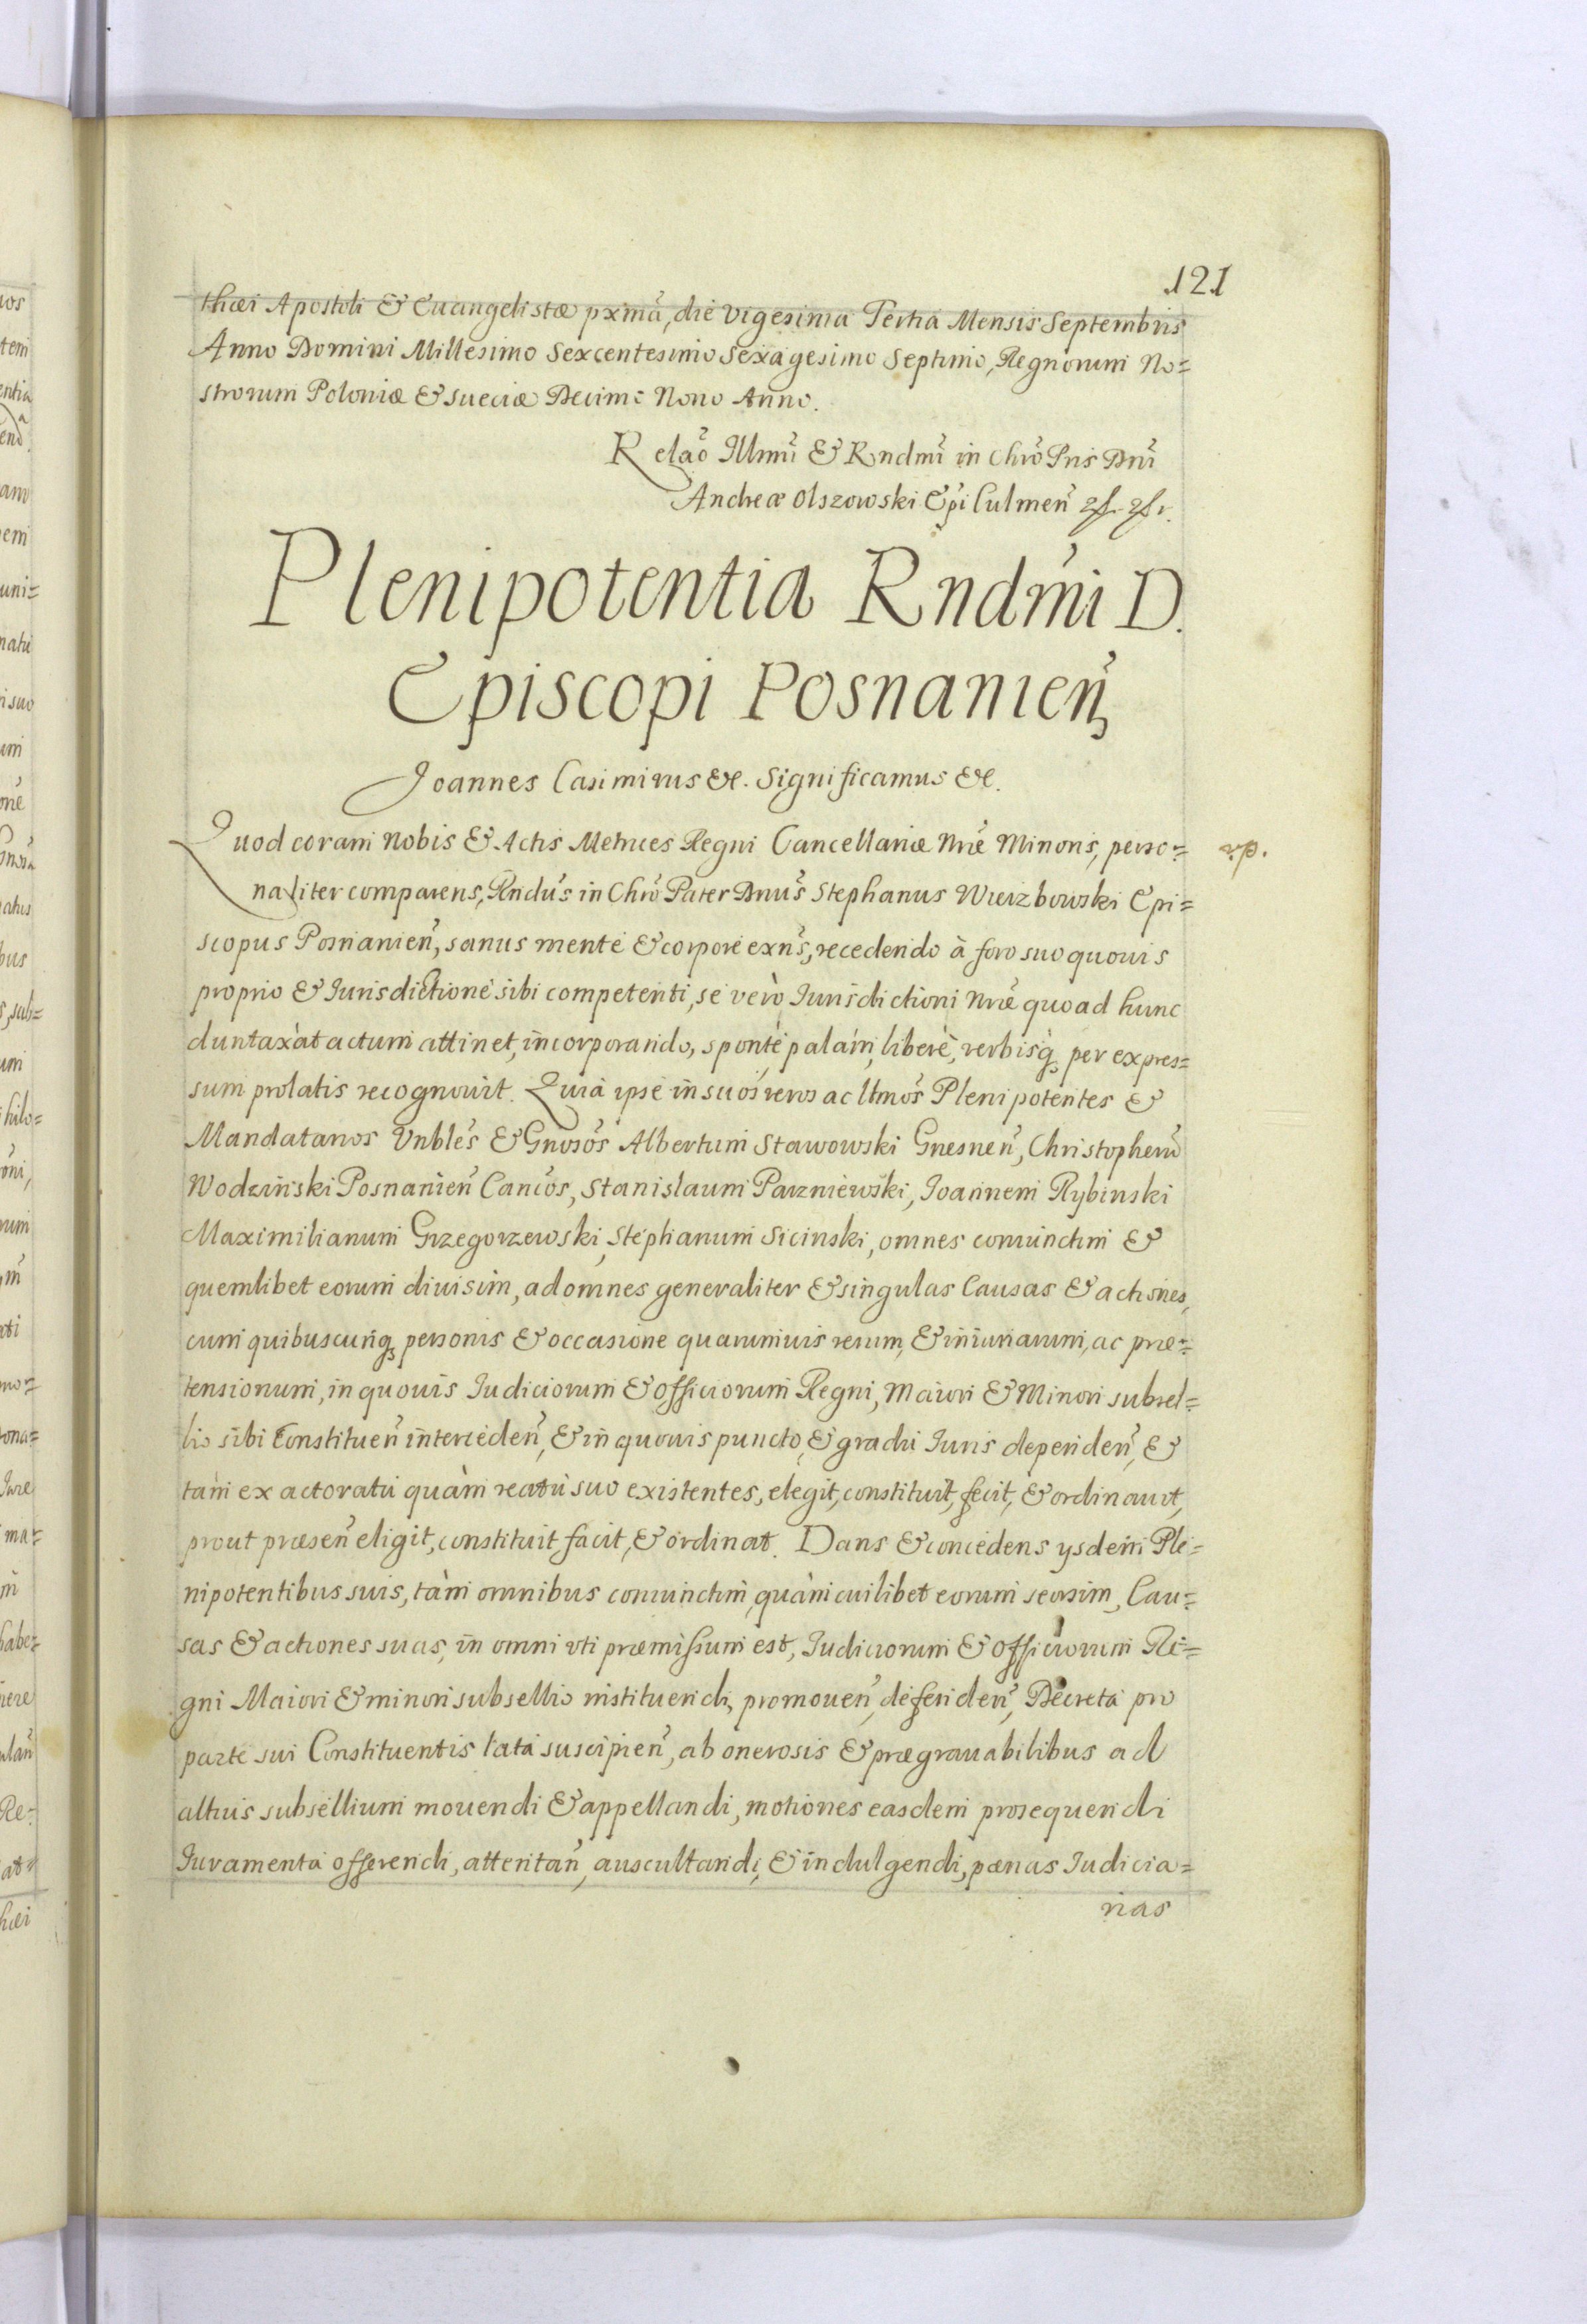 121
thæi Apostoli & Euangelistæ pxmã, die Vigesima Tertia Mensis Septembris
Anno Domini Millesimo Sexcentesimo Sexagesimo Septimo, Regnorum No=
strorum Poloniæ & Sueciæ Decimo Nono Anno.
Relaõ Illmi & Rndmi in Chrõ Pris Dni
Andreæ Olszowski Epi Culmen
Plenipotentia Rndmi D.
Episcopi Posnanien
Joannes Casimirus &c. Significamus &c.
Quod coram Nobis & Actis Metrices Regni Cancellariæ Nræ Minoris, perso=
naliter comparens, Rndus in Chro Pater Dnus Stephanus Wierzbowski Epi=
scopus Posnanien, sanus mente & corpore exns, recedendo à foro suo quouis
proprio & Iurisdictione sibi competenti, se verò Iurisdictioni Nræ quo ad hunc
duntaxàt actum attinet, incorporando, sponte palàm, liberè, verbisq per expres=
sum prolatis recognouit. Quia ipse in suos veros ac ltmos Plenipotentes &
Mandatarios Vnbles & Gnosos Albertum Stawowski Gnesnen, Christopherũ
Wodzinski Posnanien Cancos, Stanislaum Parzniewski, Joannem Rybinski
Maximilianum Grzegorzewski, Stephanum Sicinski, omnes coniunctim &
quemlibet eorum diuisim, ad omnes generaliter & singulas Causas & actiones,
cum quibuscunq personis & occasione quarumuis rerum, & iniuriarum, ac præ=
tensionum, in quouis Iudiciorum & Officiorum Regni, Maiori & Minori subsel=
lio sibi Constituen interceden, & in quouis puncto, & gradu Iuris dependen, &
tam ex actoratu quàm reatu suo existentes, elegit, constituit, fecit, & ordinauit,
prout præsen eligit, constituit, facit, & ordinat. Dans & concedens ysdem Ple=
nipotentibus suis, tàm omnibus coniunctim, quàm cuilibet eorum seorsim, Cau=
sas & actiones suas, in omni vti præmissum est, Iudiciorum & Officiorum Re=
gni Maiori & minori subsellio instituendi, promouen, defenden, Decreta pro
parte sui Constituentis lata suscipien, ab onerosis & prægrauabilibus ad
altius subsellium mouendi & appellandi, motiones easdem prosequendi
Iuramenta offerendi, attentan, auscultandi, & indulgendi, pænas Iudicia=
rias